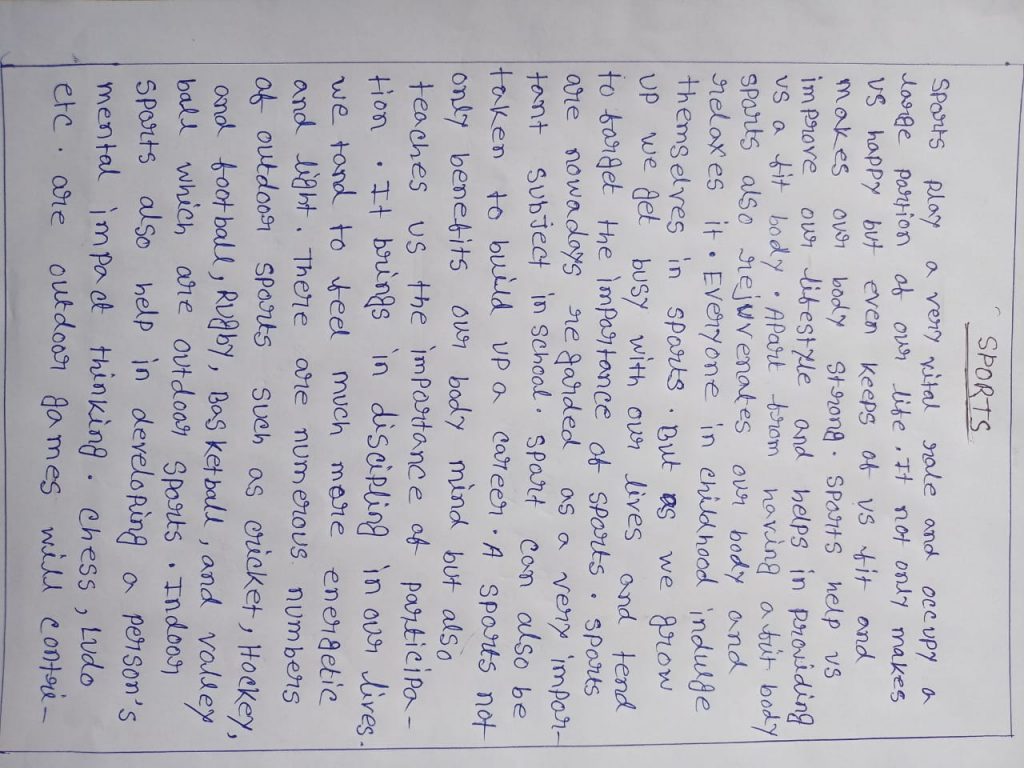 SPORTS
Sports play a very vital role and occupy a
large portion of our life. It not only makes
us happy but even keeps of us fit and
makes our body strong. sports help us
improve our lifestyle and helps in providing
us a fit body. Apart from having a fit body
sports also rejuvenates our body and
relaxes it. Everyone in childhood indulge
themselves in sports. But as we grow
up we get busy with our lives and tend
to forget the importance of sports. sports
are nowadays regarded as a very impor-
tant subject in school. sport can also be
taken to build up a career. A sports not
only benefits our body mind but also
teaches us the importance of participa-
tion. It brings in discipling in our lives.
we tand to feel much more energetic
and light. There are numerous numbers
of outdoor sports such as cricket, Hockey,
and football, Rugby, Basketball, and valley
ball which are outdoor sports. Indoor
sports also help in developing a person's
mental impact thinking. chess, Ludo
etc. are outdoor games will contri-